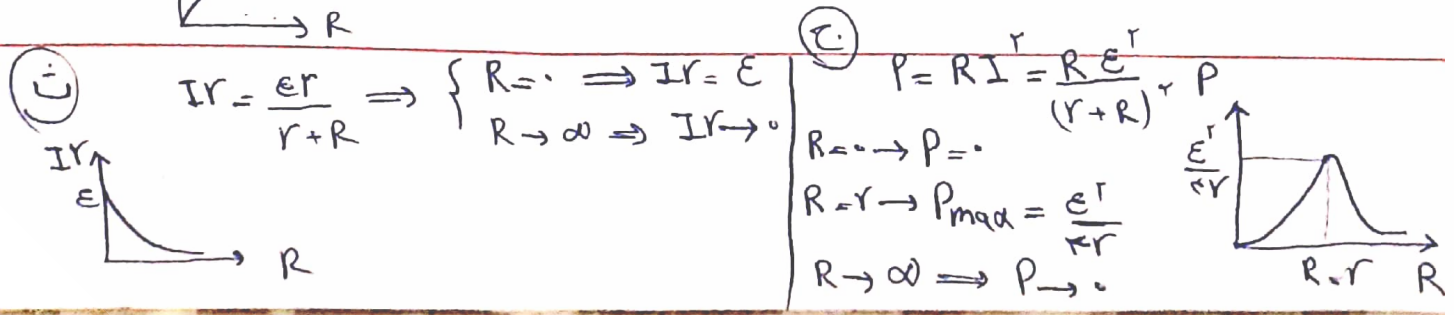 R
ث
Ir = εr / (r + R) ⟹ { R = ۰ ⟹ Ir = ε
R → ∞ ⟹ Ir → ۰
Ir
ε
R
ج
P = RI^۲ = Rε^۲ / (r + R)^۲
R = ۰ → P = ۰
R = r → Pmax = ε^۲ / ۴r
R → ∞ ⟹ P → ۰
P
ε^۲ / ۴r
R = r
R